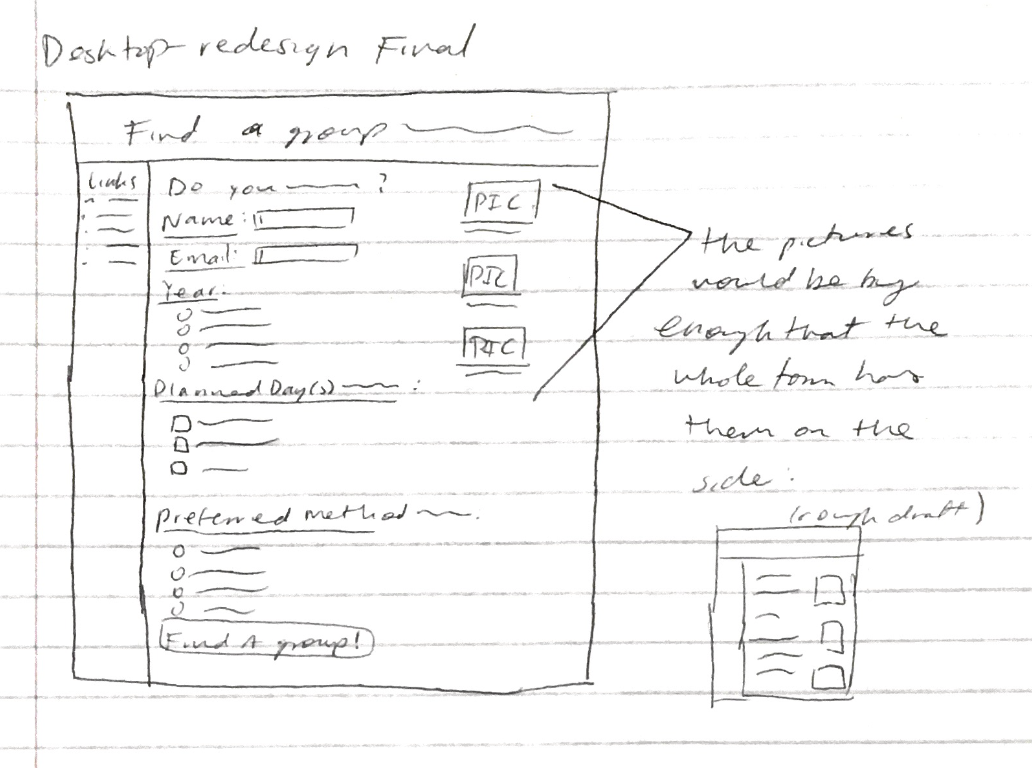 Desktop redesign Final
Find a group
Links
Do you ?
PIC
Name:
Email:
PIC
Year:
PIC
Planned Day(s) :
Preferred method .
Find A group!
the pictures
would be big
enough that the
whole form has
them on the
side:
(rough draft)